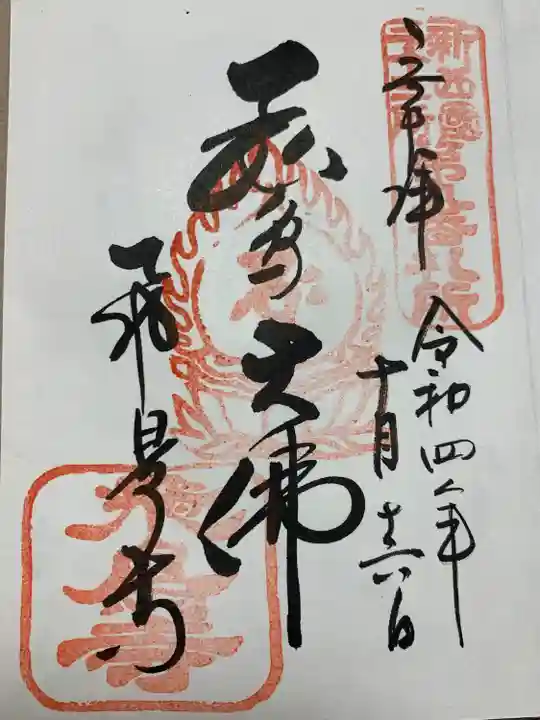 奉拝
新西國第九番札所
令和四年
十月十六日
飛鳥大佛
飛鳥寺